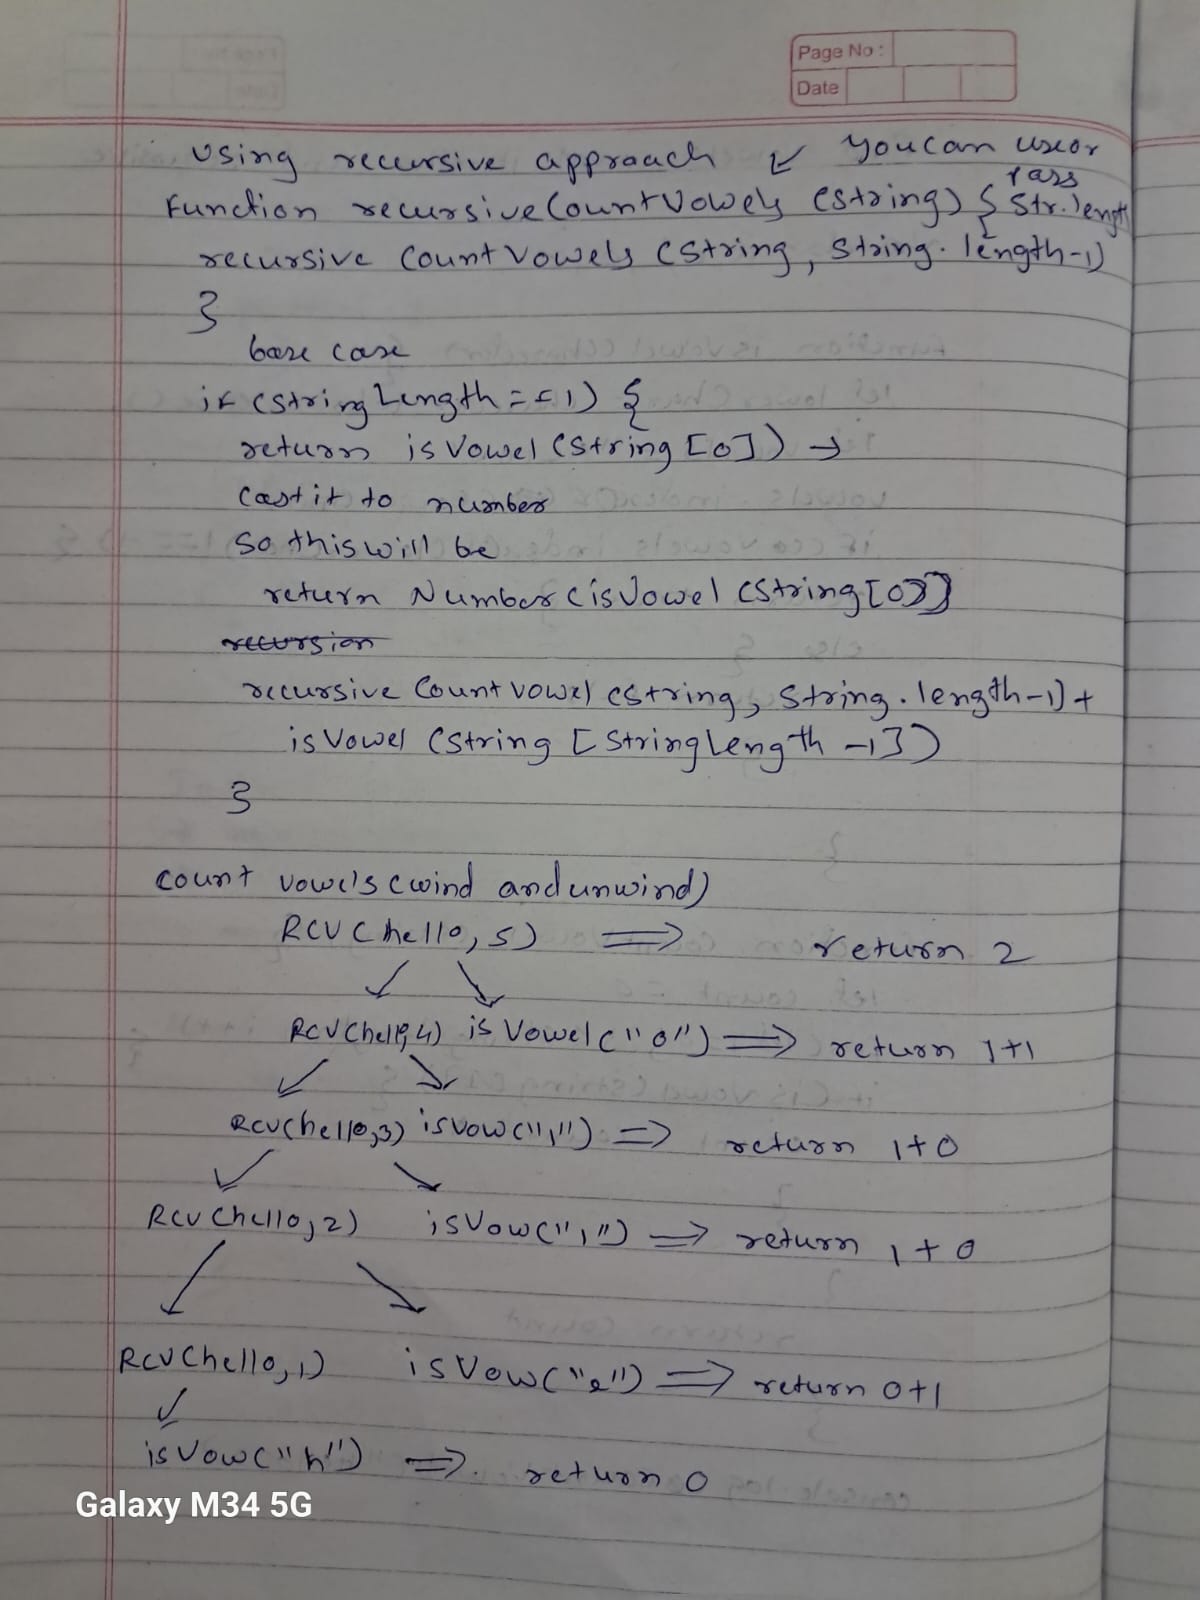 Page No :
Date
Using recursive approach ↙ You can use or
pass
Function recursiveCountVowels (string) { Str.length
recursive CountVowels (string, string.length-1)
}
base case
if (stringLength == 1) {
return isVowel (string [0]) →
Cast it to number
So this will be
return Number (isVowel (string [0])
recursion
recursive CountVowel (string, string.length-1) +
isVowel (string [stringLength -1])
}
count vowels (wind and unwind)
RCV (hello, 5) ⇒ return 2
RCV (hello, 4) isVowel ("o") ⇒ return 1+1
RCV (hello, 3) isVow ("l") ⇒ return 1+0
RCV (hello, 2) isVow ("l") ⇒ return 1+0
RCV (hello, 1) isVow ("e") ⇒ return 0+1
isVow ("h") ⇒ return 0
Galaxy M34 5G